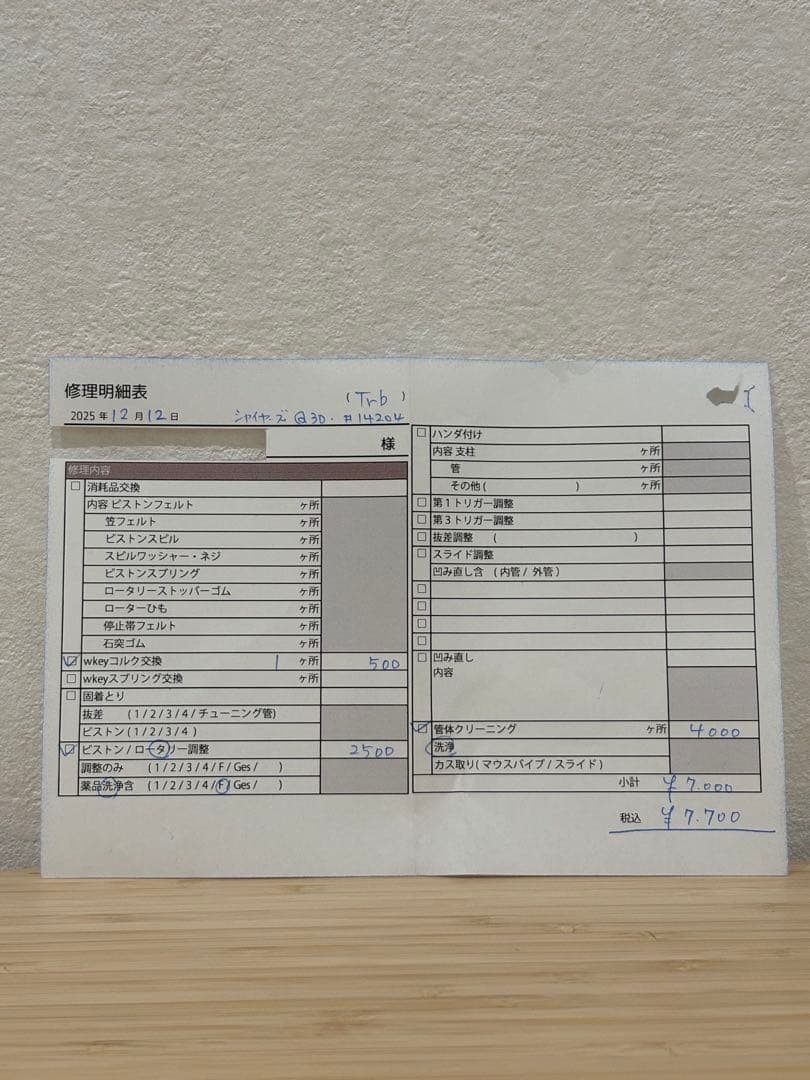 修理明細表
( Trb )
2025 年 12 月 12 日
シャイヤーズ @30. #14204
様
修理内容
□ 消耗品交換
内容 ピストンフェルト ヶ所
笠フェルト ヶ所
ピストンスピル ヶ所
スピルワッシャー・ネジ ヶ所
ピストンスプリング ヶ所
ロータリーストッパーゴム ヶ所
ローターひも ヶ所
停止帯フェルト ヶ所
石突ゴム ヶ所
☑ wkeyコルク交換 1 ヶ所 500
□ wkeyスプリング交換 ヶ所
□ 固着とり
抜差 (1/2/3/4/チューニング管)
ピストン (1/2/3/4 )
☑ ピストン/ロータリー調整 2500
調整のみ (1/2/3/4/F/Ges/ )
薬品洗浄含 (1/2/3/4/F/Ges/ )
□ ハンダ付け
内容 支柱 ヶ所
管 ヶ所
その他 ( ) ヶ所
□ 第1トリガー調整
□ 第3トリガー調整
□ 抜差調整 ( )
□ スライド調整
凹み直し含 (内管 / 外管)
□
□
□
□
□ 凹み直し
内容
☑ 管体クリーニング ヶ所 4000
洗浄
カス取り(マウスパイプ/スライド)
小計 ¥7.000
税込 ¥7.700